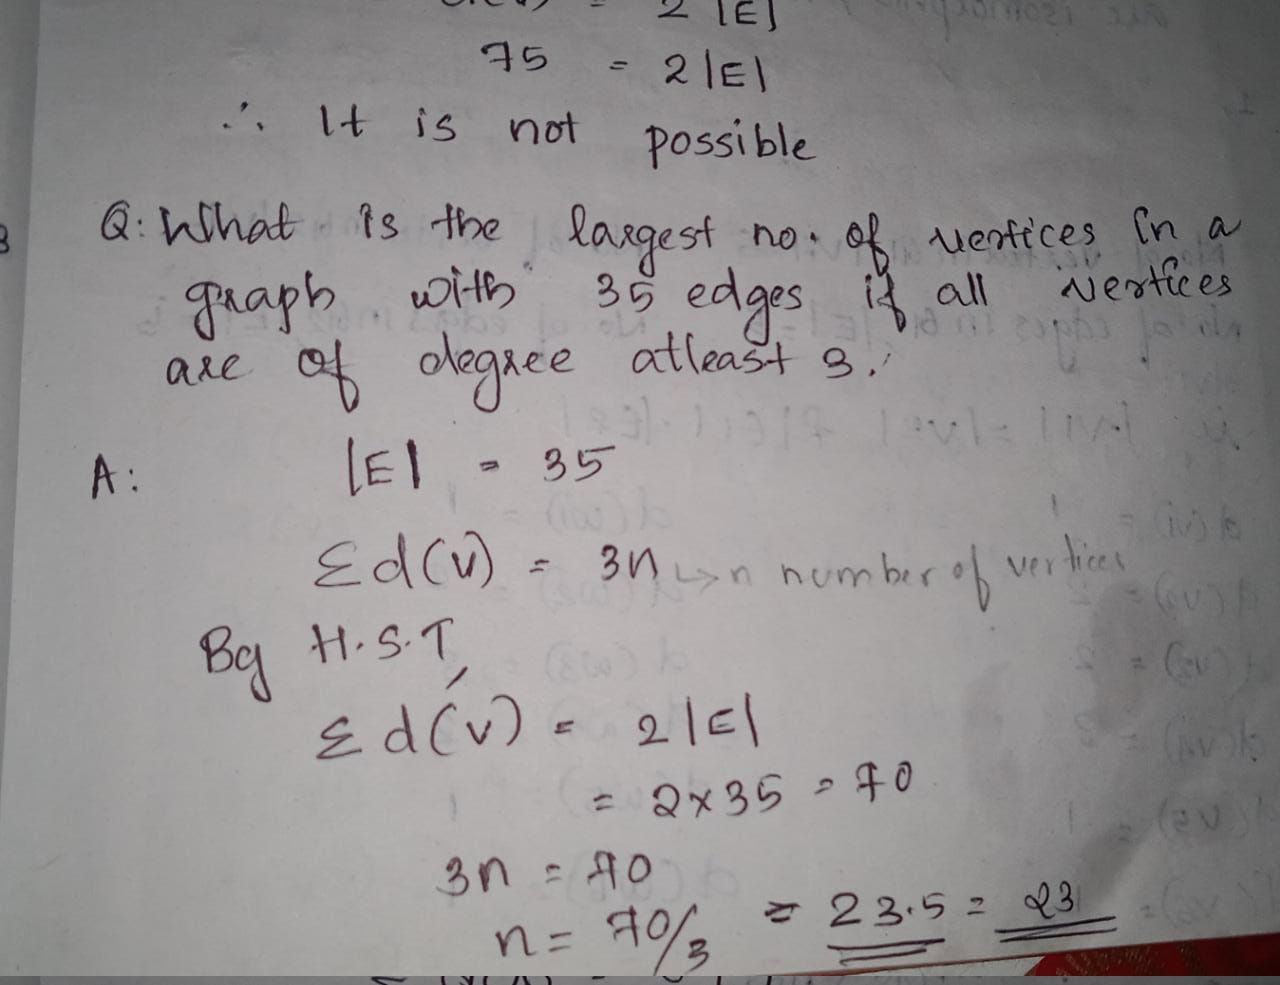 2|E|
75 = 2|E|
∴ It is not possible
Q: What is the largest no. of vertices in a
graph with 35 edges if all vertices
are of degree atleast 3.
A: |E| = 35
Σd(v) = 3n ↳ n number of vertices
By H.S.T,
Σd(v) = 2|E|
= 2×35 = 70
3n = 70
n = 70/3 = 23.5 = 23